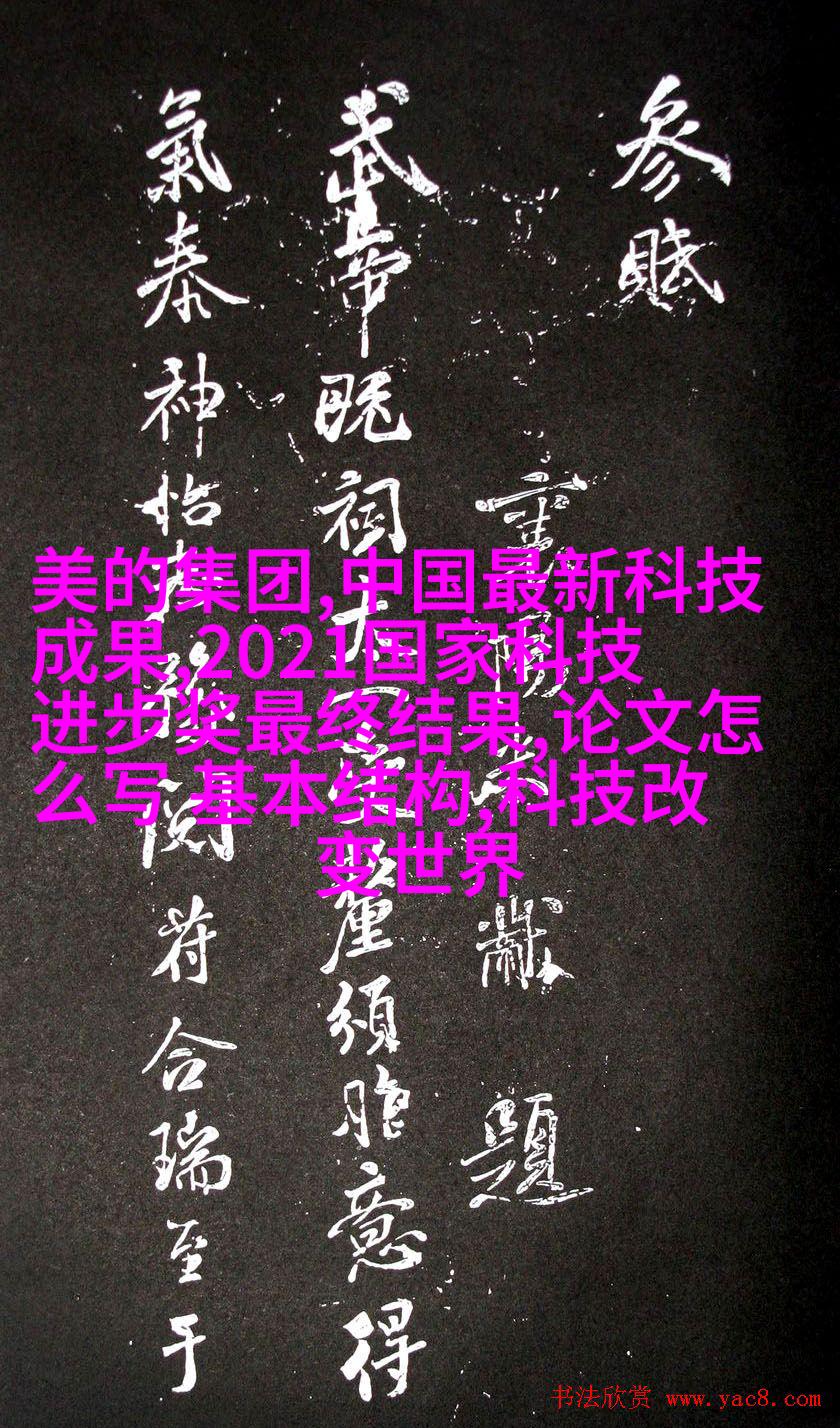 參賦
重陽
獻題
武皇帝既祠太室受釐頒胙意得
氣泰神怡
閱符合瑞至于
美的集团,中国最新科技
成果,2021国家科技
进步奖最终结果,论文怎
么写 基本结构,科技改
变世界
书法欣赏 www.yac8.com